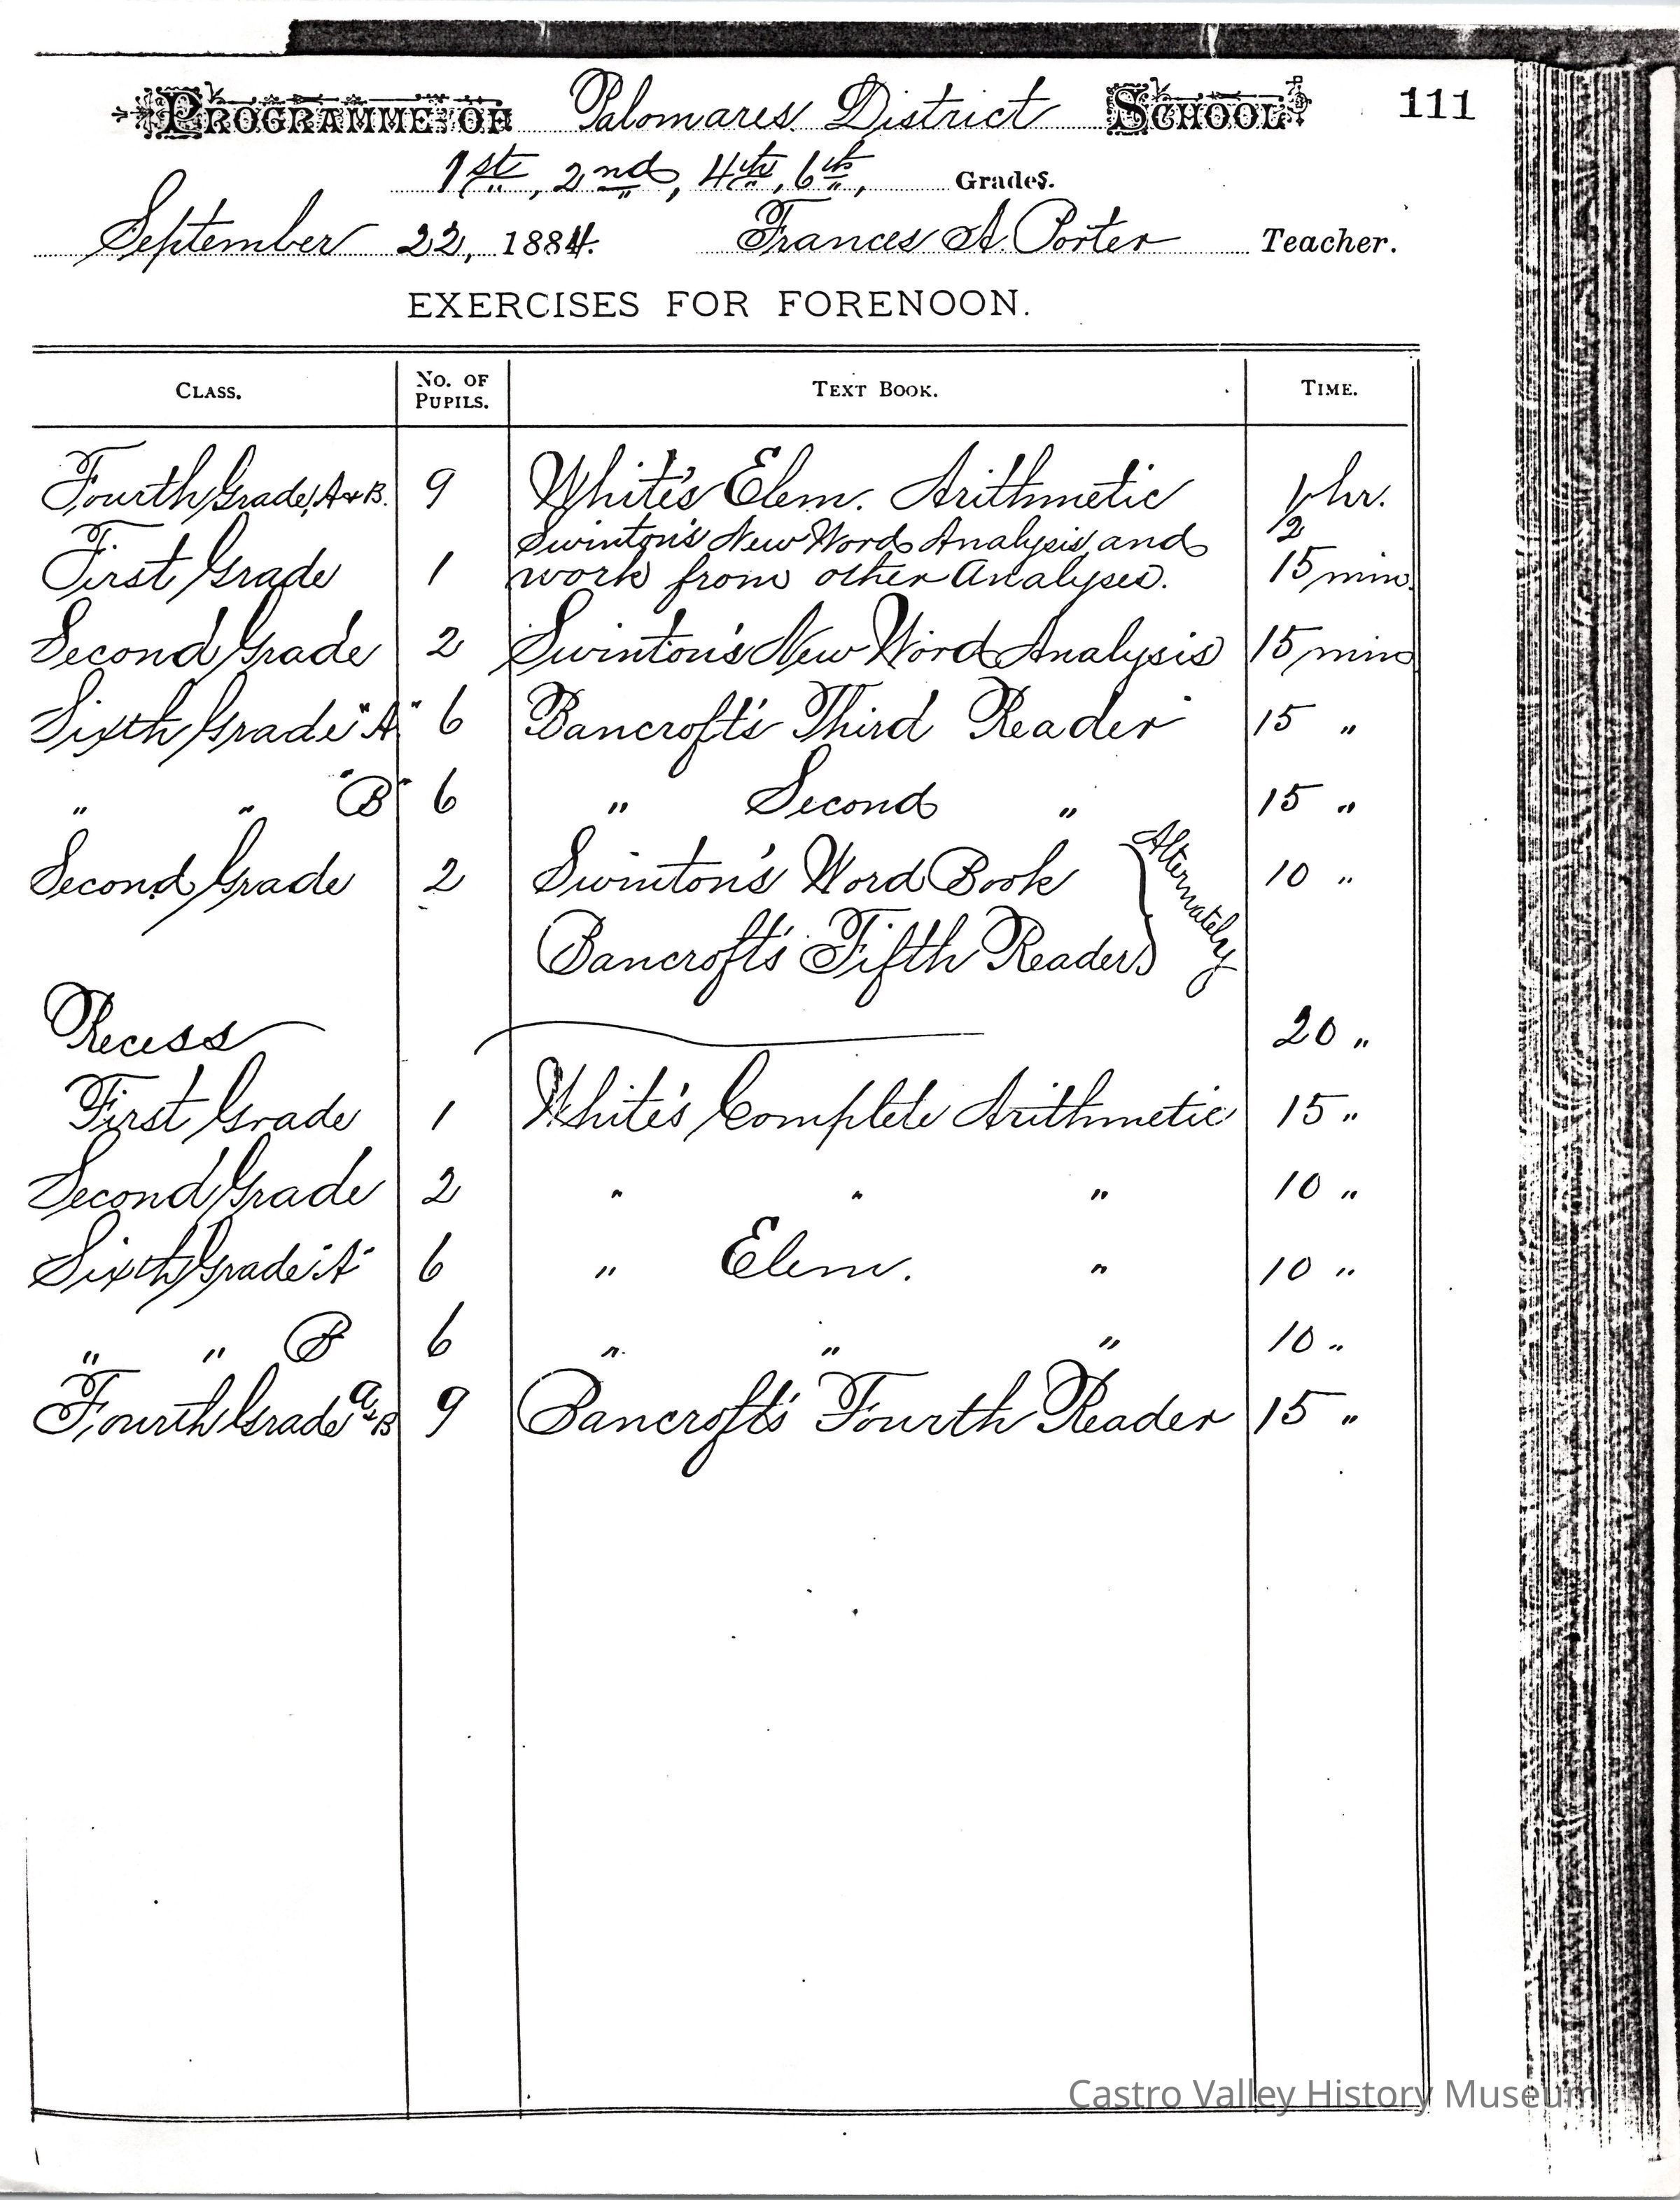 PROGRAMME OF Palomares District SCHOOL 111
1st, 2nd, 4th, 6th, Grades.
September 22, 1884. Frances A. Porter Teacher.
EXERCISES FOR FORENOON.
CLASS. NO. OF PUPILS. TEXT BOOK. TIME.
Fourth Grade, A & B. 9 White's Elem. Arithmetic 1/2 hr.
Swinton's New Word Analysis and
First Grade 1 work from other Analyses. 15 min.
Second Grade 2 Swinton's New Word Analysis 15 min
Sixth Grade "A" 6 Bancroft's Third Reader 15 "
" " "B" 6 " Second " 15 "
Second Grade 2 Swinton's Word Book Alternately 10 "
Bancroft's Fifth Reader
Recess 20 "
First Grade 1 White's Complete Arithmetic 15 "
Second Grade 2 " " " 10 "
Sixth Grade "A" 6 " Elem. " 10 "
" " B 6 " " " 10 "
Fourth Grade A & B 9 Bancroft's Fourth Reader 15 "
Castro Valley History Museum